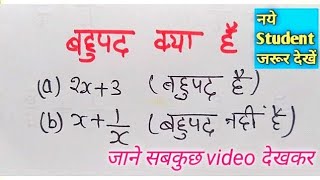 बहुपद क्या हैं
नये
Student
जरूर देखें
(a) 2x+3 (बहुपद है)
(b) x+1/x (बहुपद नहीं है)
जाने सबकुछ video देखकर